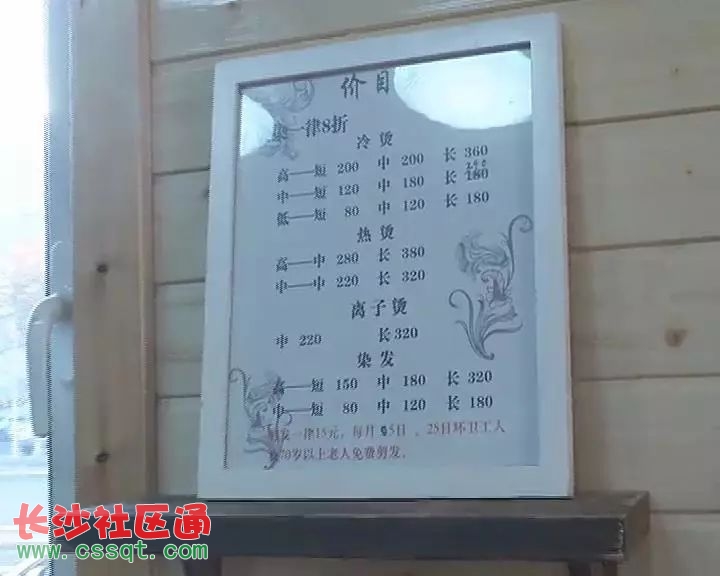 价目
一律8折
冷烫
高—短 200 中 200 长 360
240
中—短 120 中 180 长 180
低—短 80 中 120 长 180
热烫
高—中 280 长 380
中—中 220 长 320
离子烫
中 220 长320
染发
高—短 150 中 180 长 320
中—短 80 中 120 长 180
剪发一律15元，每月5日、25日环卫工人
70岁以上老人免费剪发。
长沙社区通
www.cssqt.com